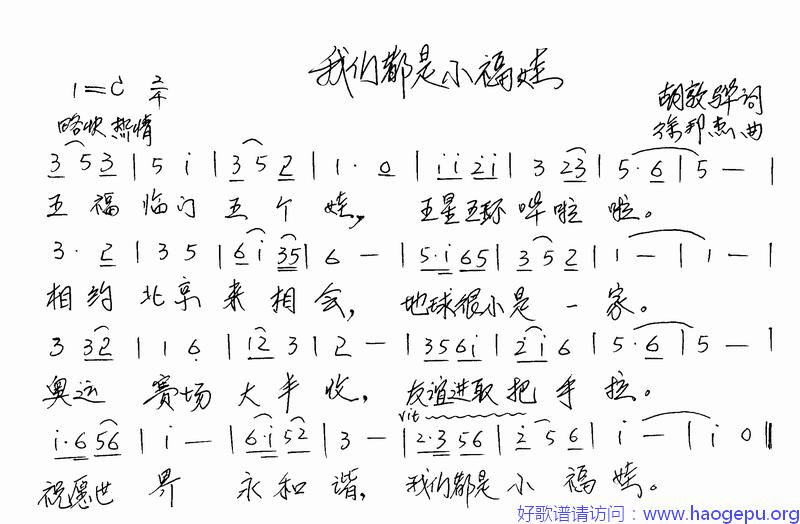 我们都是小福娃
1=C 2/4
胡敦骅词
略快 热情
徐邦杰曲
3 5 3 | 5 i | 3 5 2 | 1· 0 | i i 2 i | 3 2 3 | 5· 6 | 5 — |
五福临门五个娃, 五星五环哗啦啦。
3· 2 | 3 5 | 6 i 3 5 | 6 — | 5· i 6 5 | 3 5 2 | 1 — | 1 — |
相约北京来相会, 地球很小是一家。
3 3 2 | 1 1 6 | 1 2 3 | 2 — | 3 5 6 i | 2 i 6 | 5· 6 | 5 — |
奥运赛场大丰收, 友谊进取把手拉。
vit
i· 6 5 6 | i — | 6· i 5 2 | 3 — | 2· 3 5 6 | 2 5 6 | i — | i 0 ‖
祝愿世界永和谐, 我们都是小福娃。
好歌谱请访问：www.haogepu.org